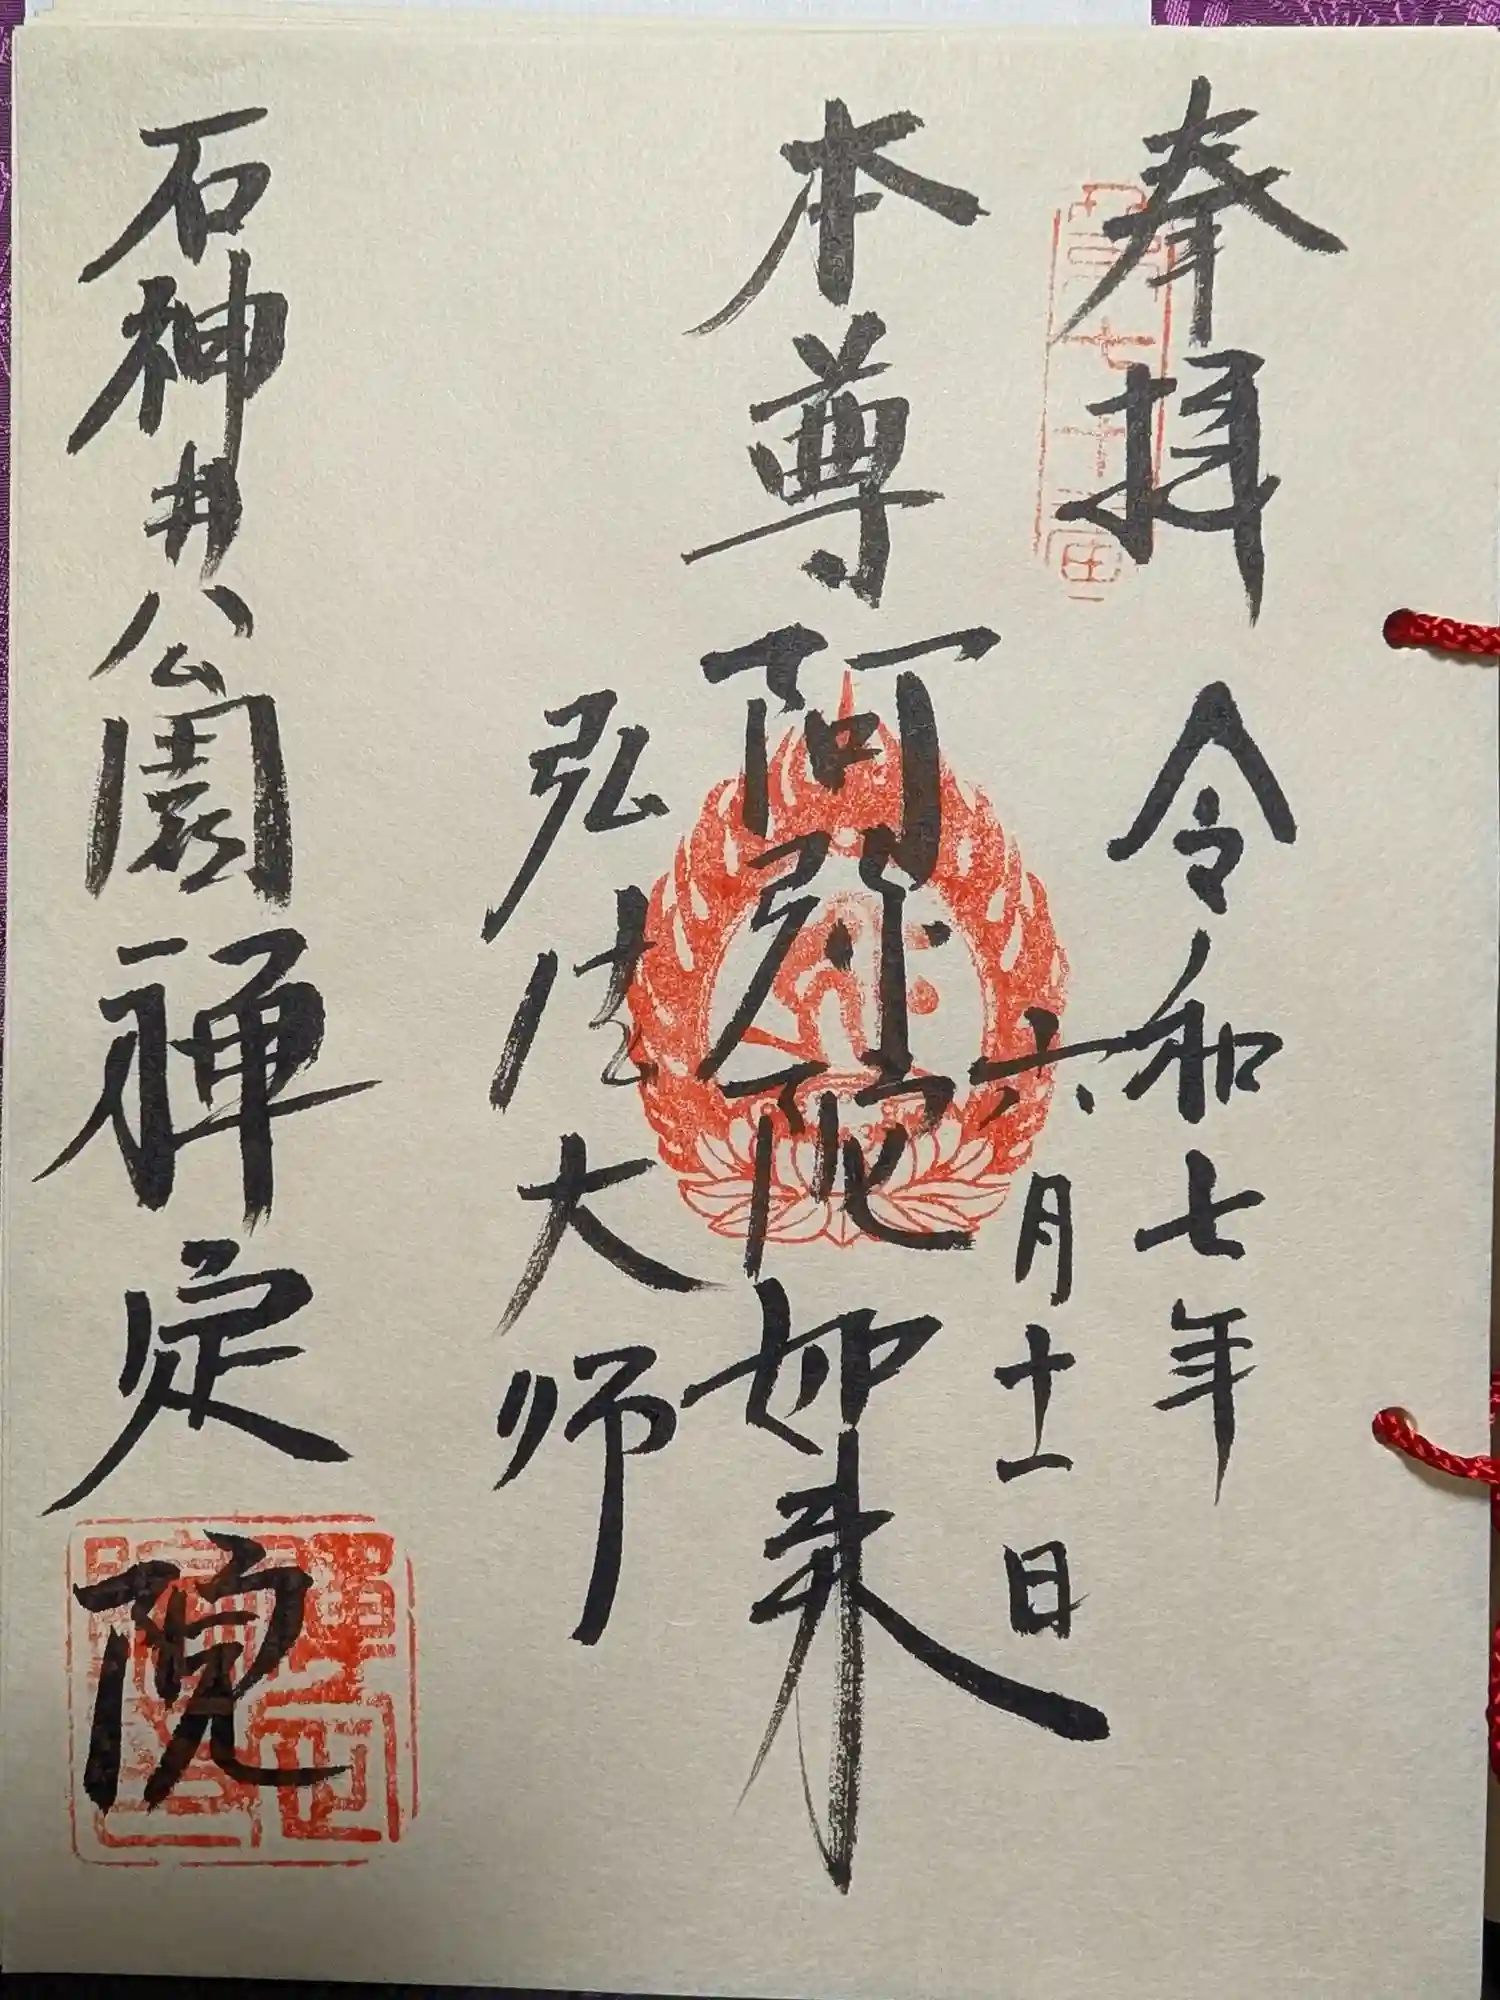 奉拝
令和七年
六月十一日
本尊阿弥陀如来
弘法大師
石神井公園禅定院